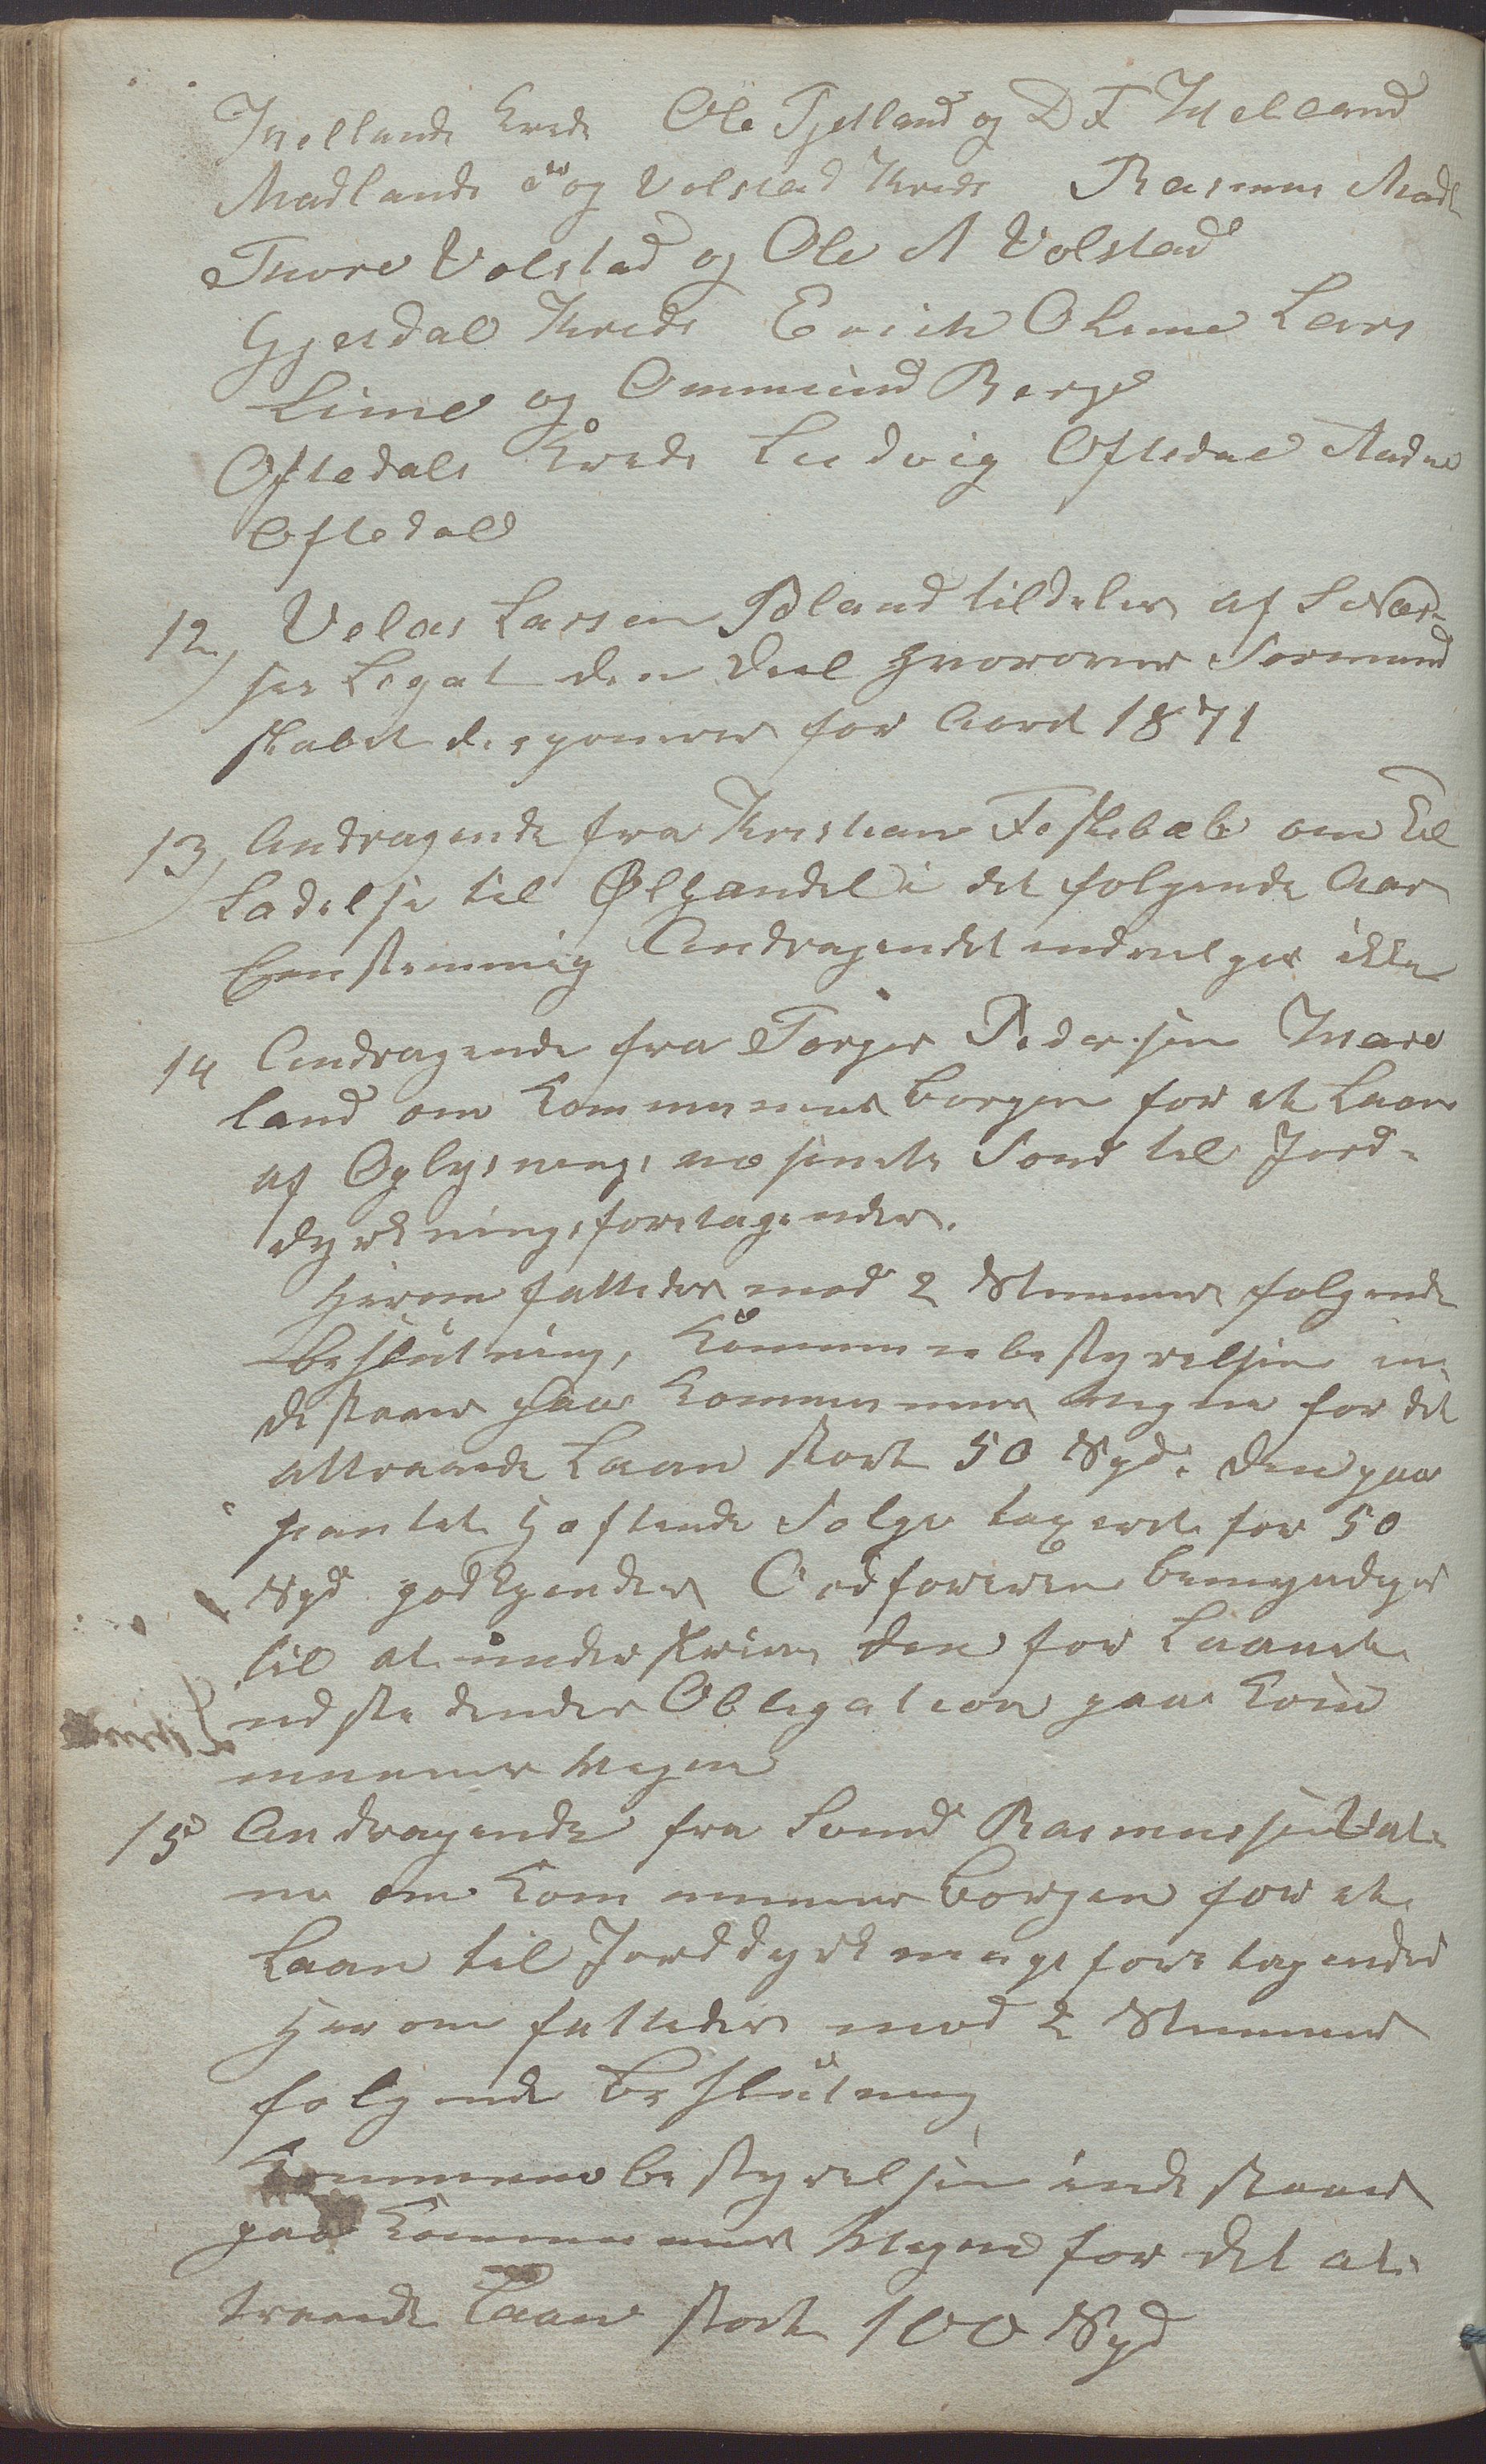 Mellands Kreds Ole Fjetland og D F Melland
Madlands og Volstad Kreds Rasmus Madl
Thore Volstad og Ole A Volstad
Gjesdal Kreds Erich O Lime Lars
Lime og Ommund Berge
Oftedals Kreds Ludvig Oftedal Aadne
Oftedal
12, Velas Larsen Øland tildeles af
ses Legat den Deel hvorover Formand
skabet disponerer for Aaret 1871
13, Andragende fra Kristian Foshebæk om Til
ladelse til Ølhandel i det følgende Aar
Eenstemmig Andragendet indvilges ikke
14 Andragende fra Torger Pedersen Mære
land om Kommunens Borgen for et Laan
af Oplysningsvæsenets Fond til Jord-
dyrkningsforetagender.
Herom fattedes med 2 Stemmer følgende
Beslutning, Kommunebestyrelsen in-
destaaer paa Kommunens Vegne for det
attraaede Laan stort 50 Spd. Den paa
pantet heftende Folge taxeret for 50
Spd godkjendes Ordføreren bemyndiges
til at underskrive den for Laanet
udstedendes Obligation paa Kom
munens Vegne
15 Andragende fra Svend Rasmussen Vat-
ne om Kommunens Borgen for et
Laan til Jorddyrkningsforetagender
Herom fattedes med 2 Stemmer
følgende Beslutning
Kommunebestyrelsen indestaaer
paa Kommunens Vegne for det at-
traaede Laan stort 100 Spd